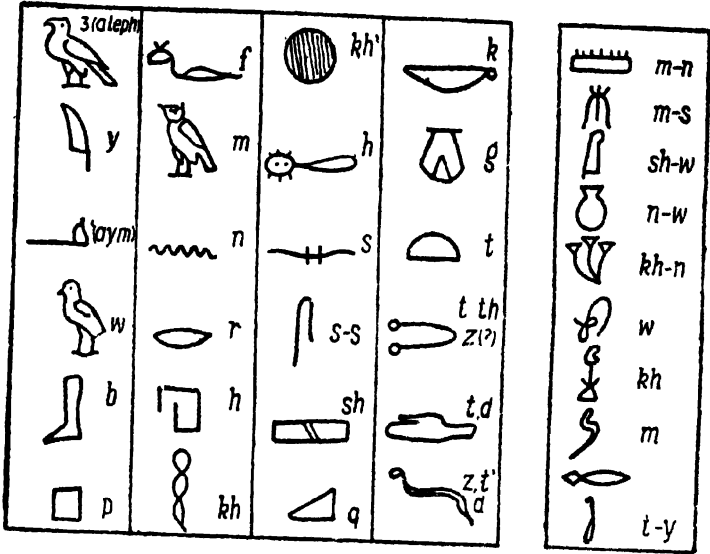 3(aleph)
y
'(aym)
w
b
p
f
m
n
r
h
kh
kh'
h
s
s-s
sh
q
k
g
t
t th
z(?)
t,d
z,t'
d
m-n
m-s
sh-w
n-w
kh-n
w
kh
m
t-y